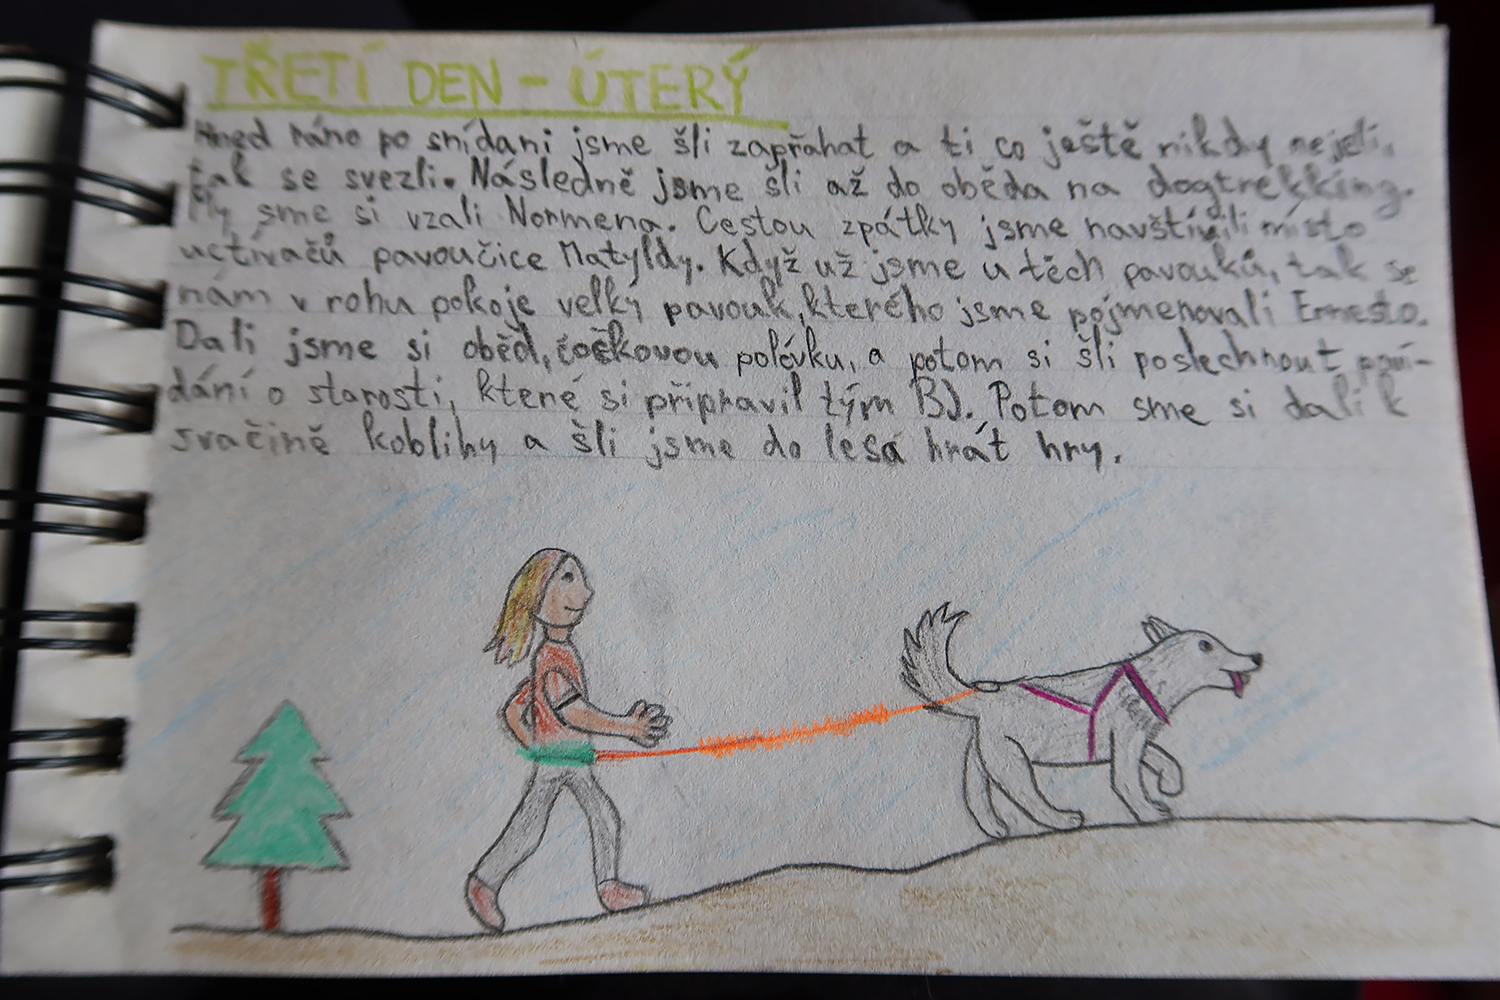 TŘETÍ DEN - ÚTERÝ
Hned ráno po snídani jsme šli zapřahat a ti co ještě nikdy nejeli,
tak se svezli. Následně jsme šli až do oběda na dogtrekking.
My sme si vzali Normena. Cestou zpátky jsme navštívili místo
uctívačů pavoučice Matyldy. Když už jsme u těch pavouků, tak se
nám v rohu pokoje velký pavouk, kterého jsme pojmenovali Ernesto.
Dali jsme si oběd, čočkovou polévku, a potom si šli poslechnout poví-
dání o starosti, které si připravil tým B). Potom sme si dali k
svačině koblihy a šli jsme do lesa hrát hry.